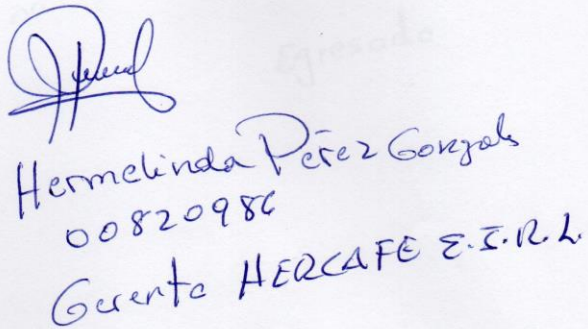 Egresado
Hermelinda Pérez Gonzales
00820986
Gerente HERCAFE E.I.R.L.